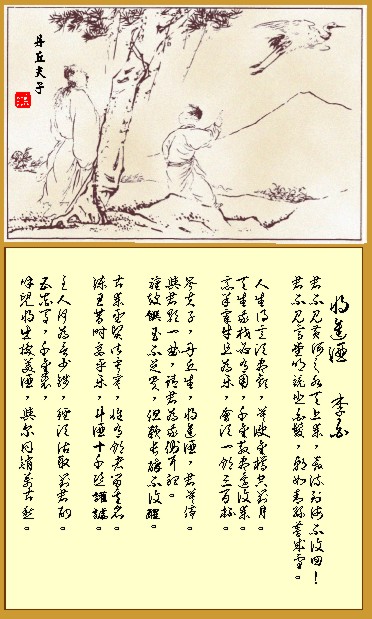 丹丘夫子
将進酒 李白
君不见黄河之水天上来,奔流到海不復回!
君不见高堂明镜悲白髮,朝如青丝暮成雪。
人生得意须尽歡,莫使金樽空对月。
天生我材必有用,千金散尽还復来。
烹羊宰牛且为樂,会须一飲三百杯。
岑夫子,丹丘生,将進酒,君莫停。
與君歌一曲,请君为我倾耳聽。
鐘鼓饌玉不足贵,但願长醉不復醒。
古来聖贤皆寂寞,惟有飲者留其名。
陈王昔时宴平乐,斗酒十千恣讙謔。
主人何为言少錢,徑须沽取对君酌。
五花马,千金裘,
呼儿将出换美酒,與尔同销万古愁。